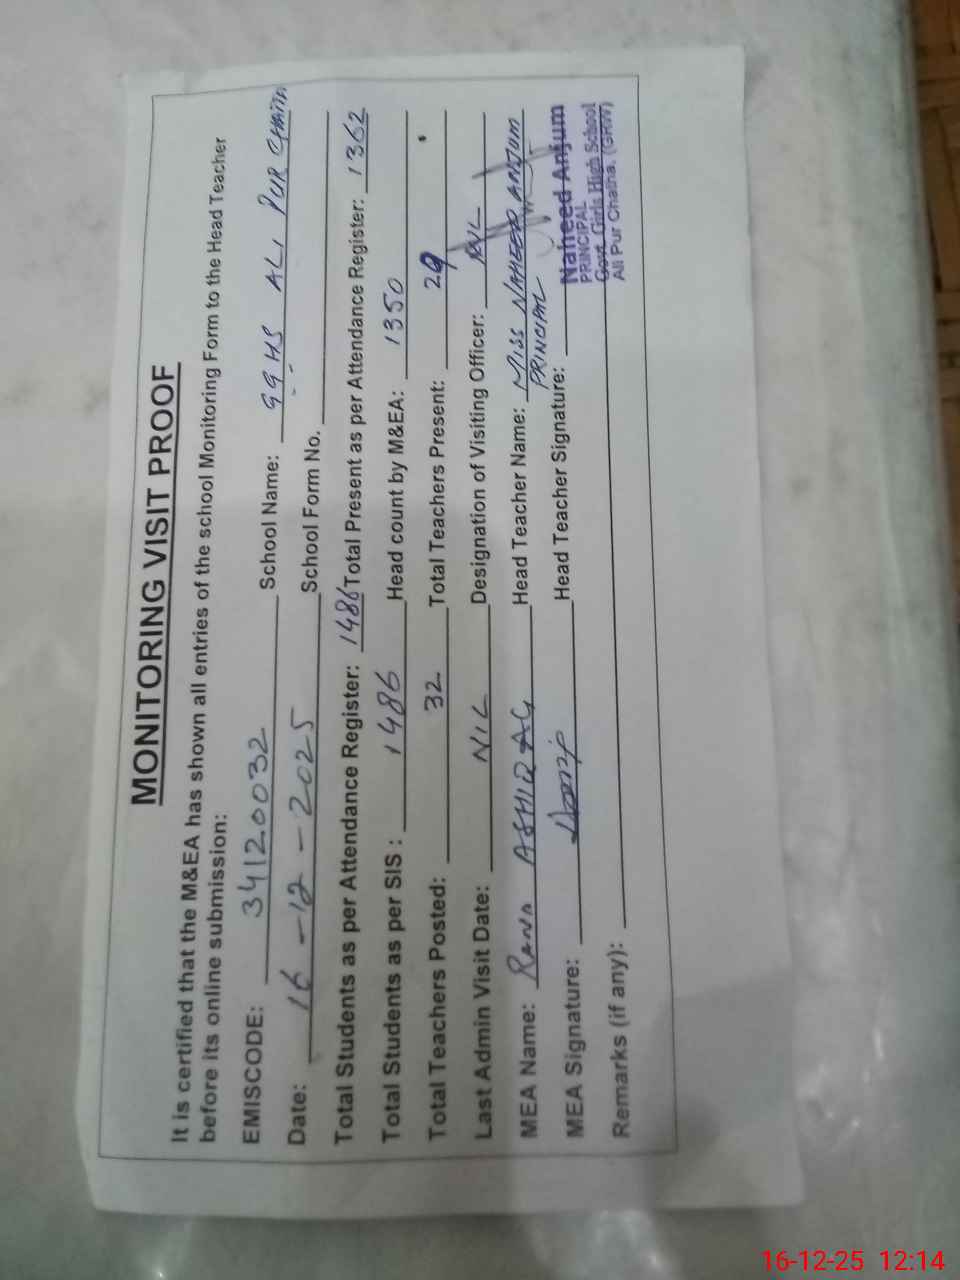 MONITORING VISIT PROOF
It is certified that the M&EA has shown all entries of the school Monitoring Form to the Head Teacher
before its online submission:
EMISCODE: 34120032 School Name: GGHS ALI PUR CHATTA
Date: 16-12-2025 School Form No.
Total Students as per Attendance Register: 1486 Total Present as per Attendance Register: 1362
Total Students as per SIS : 1486 Head count by M&EA: 1350
Total Teachers Posted: 32 Total Teachers Present: 29
Last Admin Visit Date: NIL Designation of Visiting Officer: NIL
MEA Name: RANA ASHIQ AG Head Teacher Name: MISS NAHEED ANJUM
PRINCIPAL
MEA Signature: Head Teacher Signature:
Naheed Anjum
PRINCIPAL
Govt. Girls High School
Ali Pur Chatha. (GRW)
Remarks (if any):
16-12-25 12:14